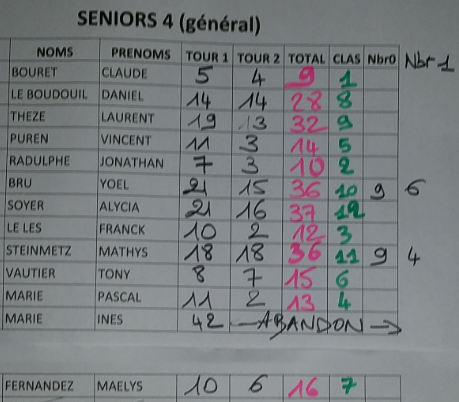 SENIORS 4 (général)
NOMS PRENOMS TOUR 1 TOUR 2 TOTAL CLAS Nbr0 Nbr 1
BOURET CLAUDE 5 4 9 1
LE BOUDOUIL DANIEL 14 14 28 8
THEZE LAURENT 19 13 32 9
PUREN VINCENT 11 3 14 5
RADULPHE JONATHAN 7 3 10 2
BRU YOEL 21 15 36 10 9 6
SOYER ALYCIA 21 16 37 12
LE LES FRANCK 10 2 12 3
STEINMETZ MATHYS 18 18 36 11 9 4
VAUTIER TONY 8 7 15 6
MARIE PASCAL 11 2 13 4
MARIE INES 42 ABANDON
FERNANDEZ MAELYS 10 6 16 7